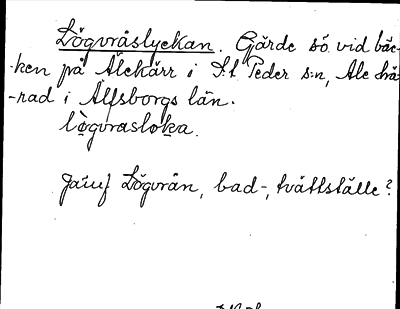 Lögvråslyckan. Gärde sö. vid bäc-
-ken på Älekärr i S:t Peder s:n, Ale hä-
-rad i Älfsborgs län.
lògvrasloka.
Jämf Lögvrån, bad-, tvättställe?